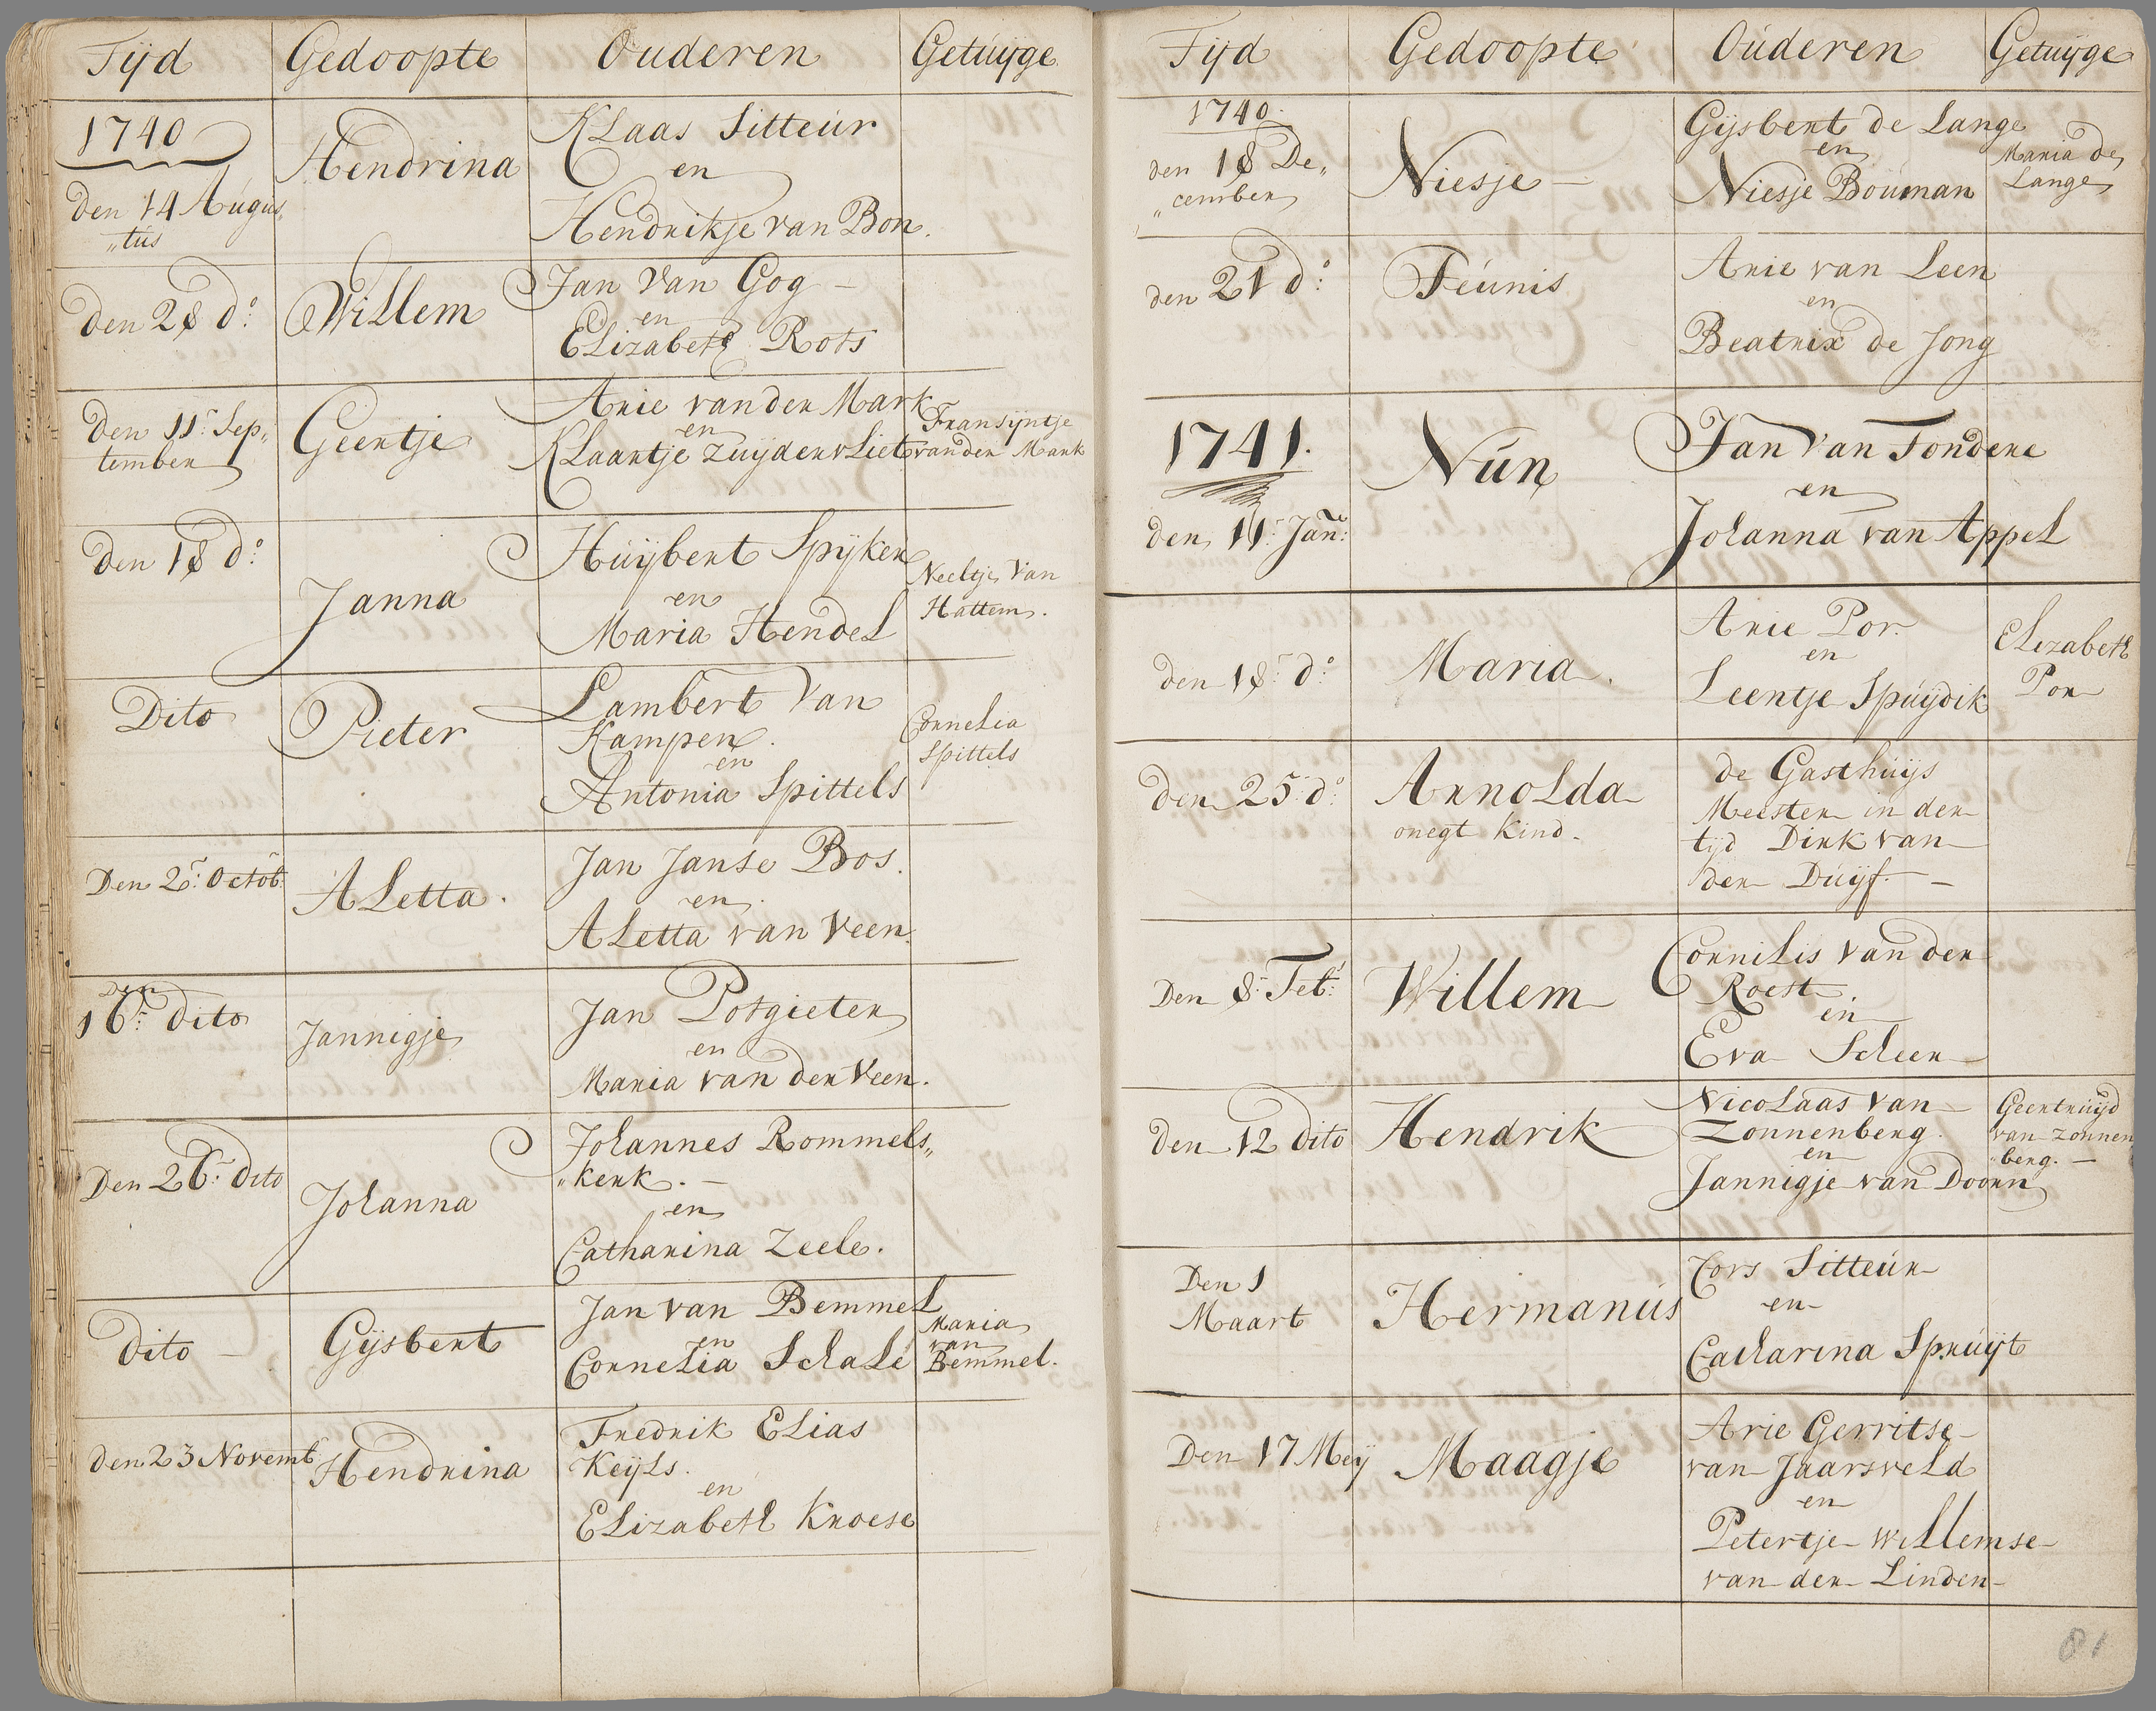 Tijd Gedoopte Ouderen Getuijge
1740
den 14 Augus„
„tus
Hendrina
KLaas Sitteur
en
Hendrikje van Bon.
den 28 do:
Willem
Jan Van Gog
en
Elizabeth Rots
den 11: Sep„
tember
Geertje
Arie van der Mark
en
KLaartje zuijdervliet
Fransijntje
van der Mark
den 18 do:
Janna
Huijbert Spijker
en
Maria Hendel
Neeltje Van
Hattem.
Dito
Pieter
Lambert Van
Kampen.
en
Antonia Spittels
Cornelia
Spittels
Den 2: Octob:
ALetta.
Jan Janse Bos.
en
ALetta van Veen.
Den
16: dito
Jannigje
Jan Potgieter
en
Maria van der Veen.
Den 26: dito
Johanna
Johannes Rommels„
„kerk.
en
Catharina Zeele.
dito
Gijsbert
Jan van Bemmel
en
Cornelia Schale
Maria
van
Bemmel.
den 23 Novemb
Hendrina
Fredrik ELias
Keijls.
en
ELizabeth Kroese
Tijd Gedoopte Ouderen Getuijge
1740.
den 18 De„
„cember
Niesje
Gijsbert de Lange
en
Niesje Bouman
Maria de
Lange
den 21 do:
Teunis
Arie van Leen
en
Beatrix de Jong
1741.
den 11: Jan:
Nun
Jan Van Tondere
en
Johanna van Appel
den 18: do:
Maria.
Arie Por.
en
Leentje Spuijdik
Elizabeth
Por
den 25: do:
ArnoLda
onegt Kind.
de Gasthuijs
Meester in der
tijd Dirk van
der Duijf.
Den 8: Feb:
Willem
Cornilis van der
Roest.
en
Eva Scheer
den 12 dito
Hendrik
NicoLaas van
Zonnenberg.
en
Jannigje van Doorn
Geertruijd
van Zonnen
„berg.
Den 1
Maart
Hermanus
Cors Sitteur
en
Catharina Spruijt
Den 17 Meij
Maagje
Arie Gerritse
van JaarsveLd
en
Petertje Willemse
van der Linden
81